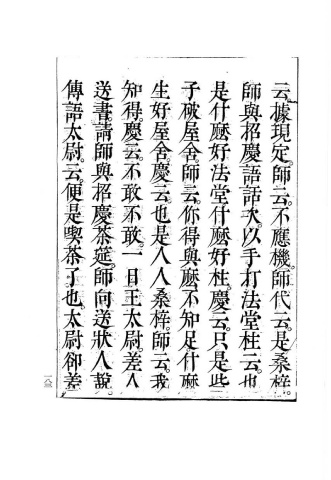 云據現定師云不應機師代云是桑梓
師與招慶語話次以手打法堂柱云也
是什麼好法堂什麼好柱慶云只是些
子破屋舍師云你得與麼不知足什麼
生好屋舍慶云也是人人桑梓師云我
知得慶云不敢不敢一日王太尉差人
送書請師與招慶茶筵師向送狀人說
傳語太尉云便是喫茶了也太尉卻差